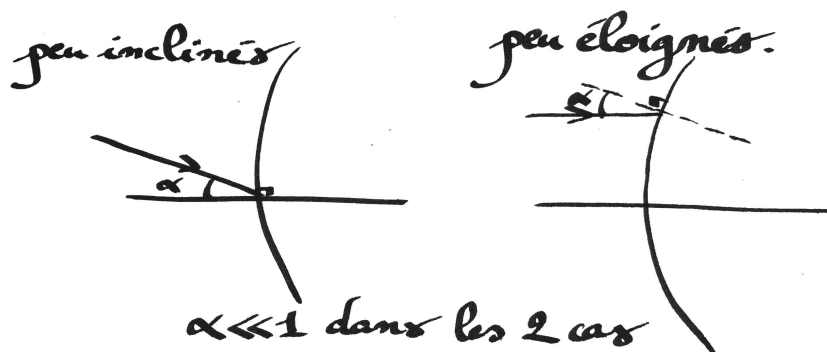 peu inclinés
peu éloignés.
α
α
α<<1 dans les 2 cas